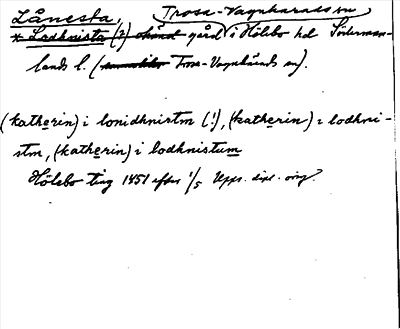 Lånesta, Trosa-Vagnhärads sn
* Lodknista (?) gård i Hölebo hd Söderman-
lands l. (Trosa-Vagnhärads sn).
(katherin) i lonidknirtm (!), (katherin) i lodkni-
stm, (katherin) i lodknistum
Hölebo ting 1451 efter 1/5 Upps. dipl. orig.